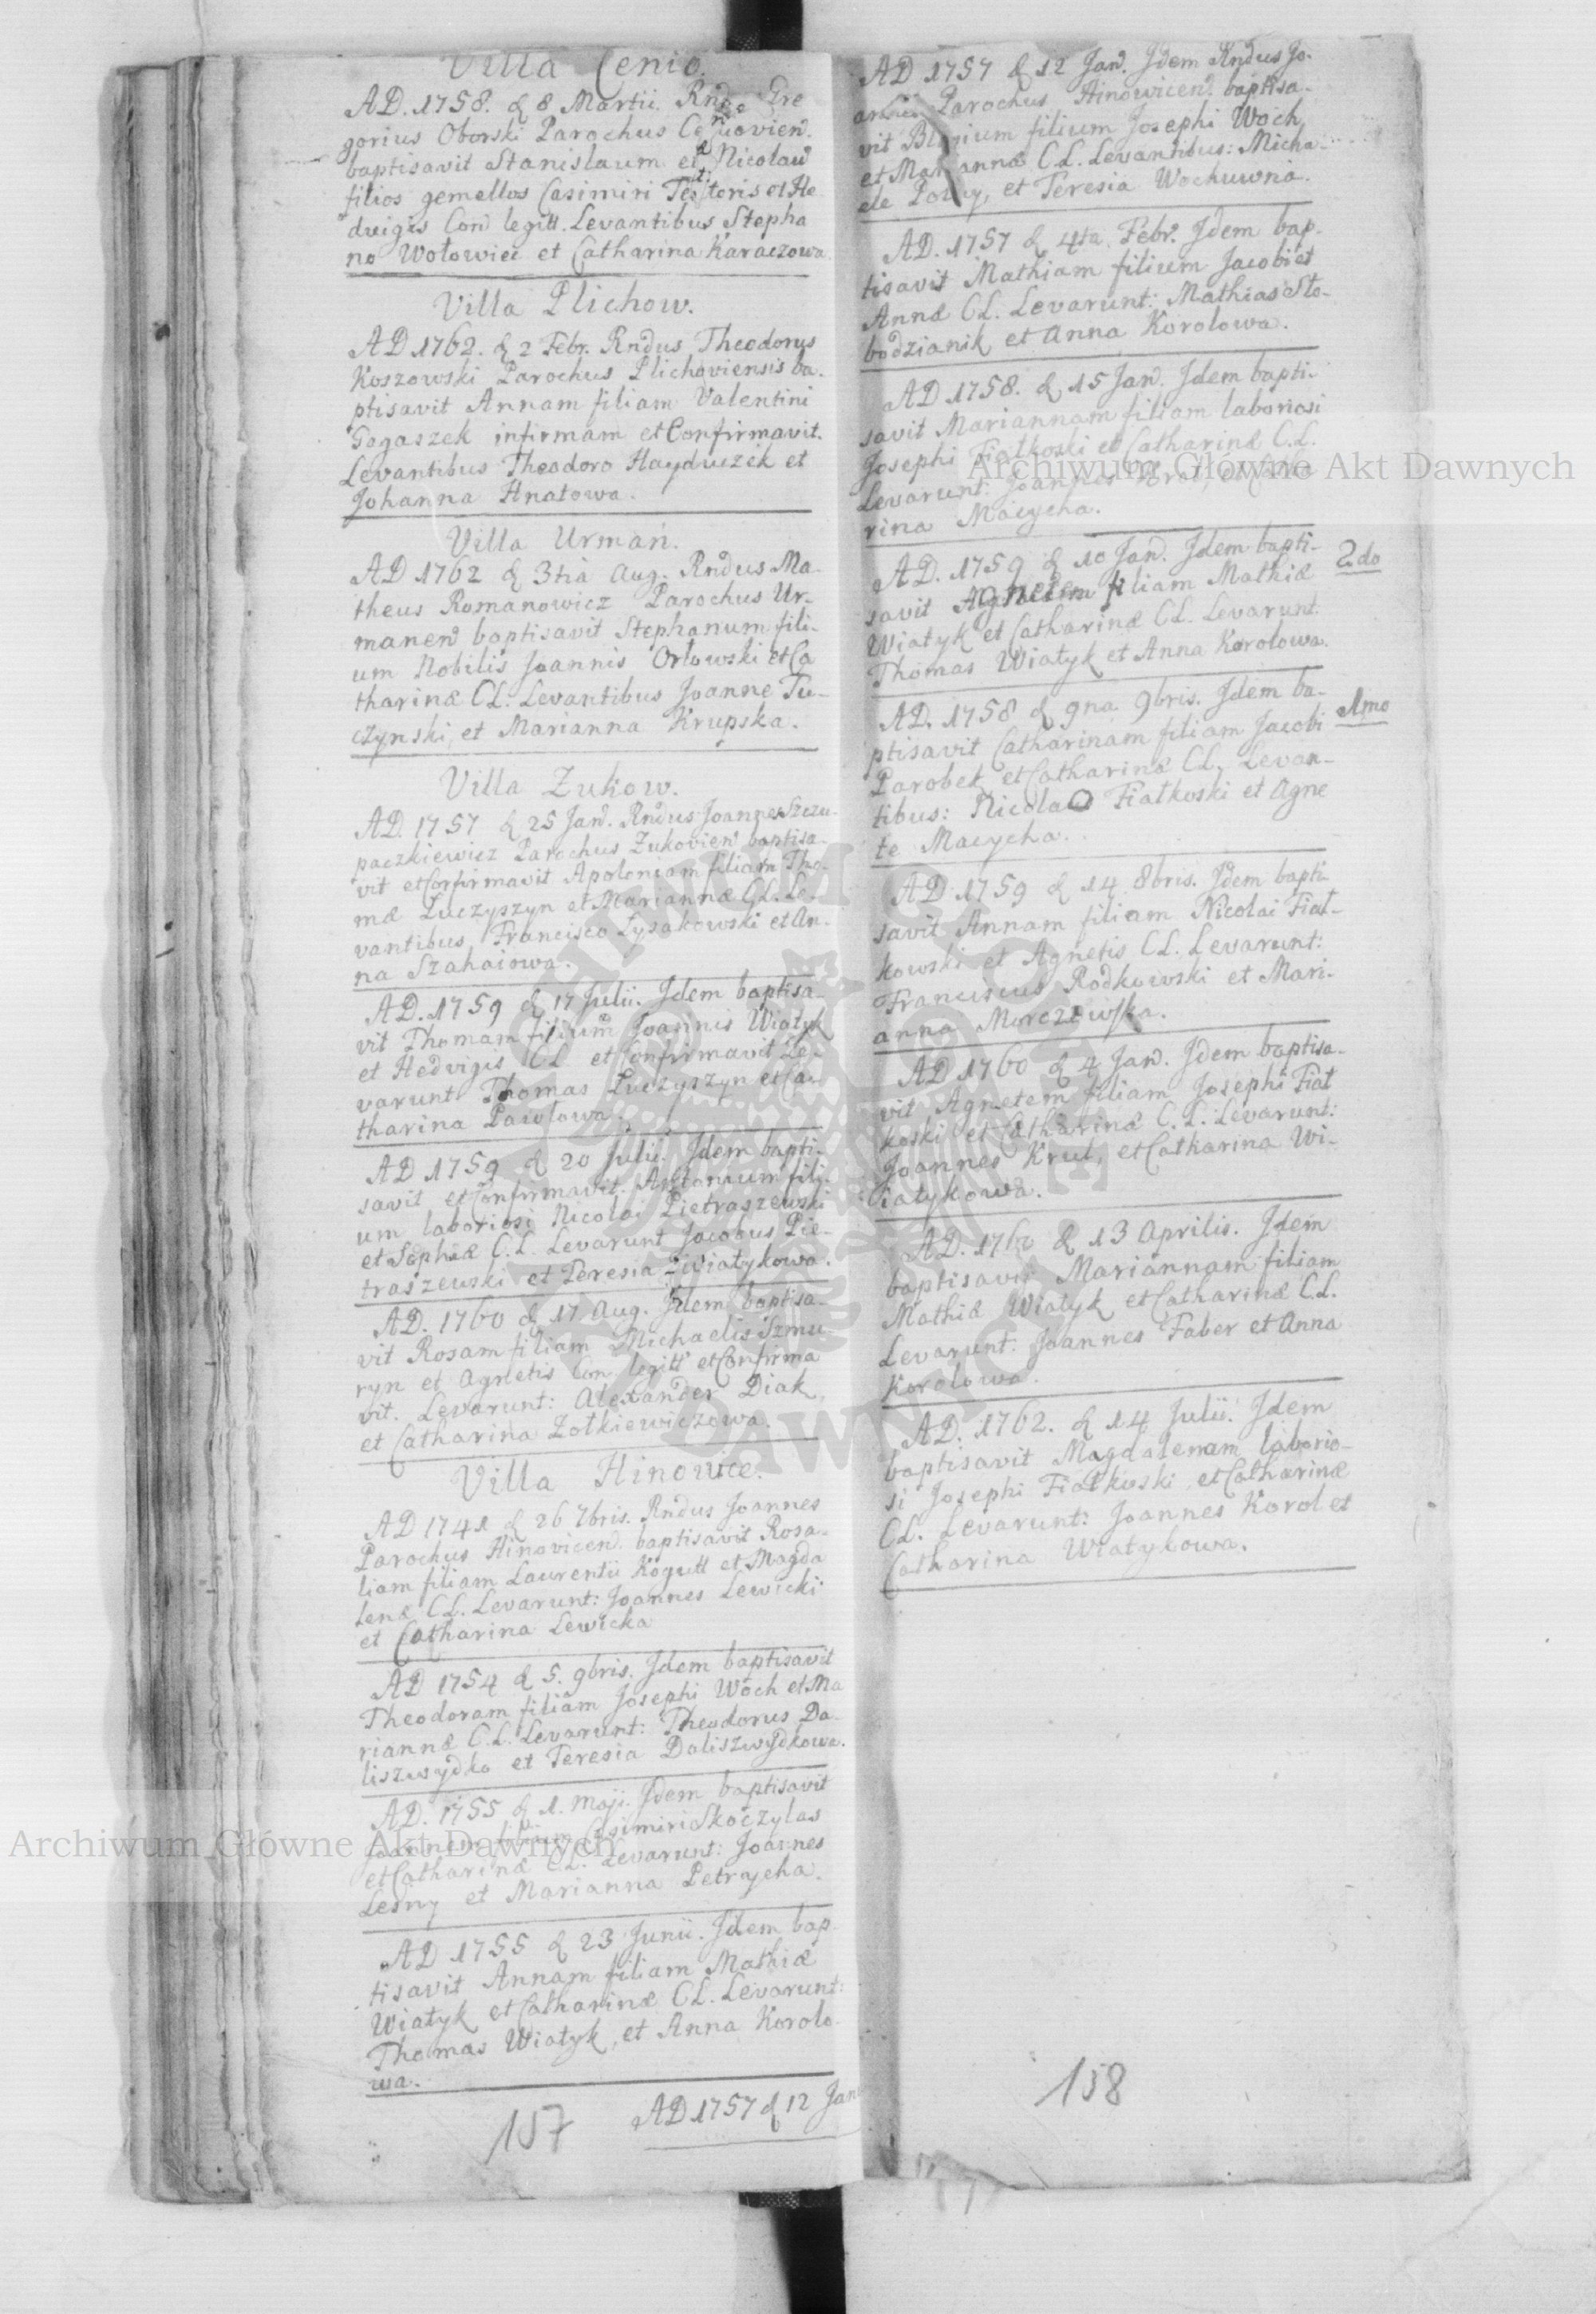 Villa Cenio.
AD. 1758. d 8 Martii. Rndo Gre
gorius Oborski Parochus Cenioviend.
baptisavit Stanislaum et Nicolaū
filios gemellos Casimiri Textoris et He
dvigis Con legitt. Levantibus Stepha
no Wołowiec et Catharina Karaczowa
Villa Plichow.
AD 1762. d 2 Febr. Rndus Theodorus
Koszowski Parochus Plichoviensis ba-
ptisavit Annam filiam Valentini
Gagaszek infirmam et Confirmavit.
Levantibus Theodoro Hayduczek et
Johanna Hnatowa.
Villa Urmań.
AD 1762 d 3tia Aug. Rndus Ma-
theus Romanowicz Parochus Ur-
manend baptisavit Stephanum fili-
um Nobilis Joannis Orłowski et Ca
tharinæ CL. Levantibus Joanne Tu-
czynski, et Marianna Krupska.
Villa Zukow.
AD. 1757 d 25 Jand. Rndus Joannes Szczu-
paczkiewicz Parochus Zukoviend baptisa-
vit et Confirmavit Apoloniam filiam Tho-
mæ Luczyszyn et Mariannæ CL. Le-
vantibus Francisco Lysakowski et An-
na Szahaiowa.
AD. 1759 d 17 Julii. Idem baptisa-
vit Thomam filium Joannis Wiatyk
et Hedvigis CL et Confirmavit Le-
varunt Thomas Luczyszyn et Ca-
tharina Pawłowa.
AD 1759 d 20 Julii. Idem bapti-
savit et Confirmavit. Antonium fili-
um laboriosi Nicolai Pietraszewski
et Sophiæ C.L. Levarunt Jacobus Pie-
traszewski et Teresia Wiatykowa.
AD. 1760 d 17 Aug. Idem baptisa-
vit Rosam filiam Michaelis Szmu-
ryn et Agnetis Con legitt et Confirma
vit. Levarunt: Alexander Diak,
et Catharina Zołkiewiczowa.
Villa Hinowice.
AD 1741 d 26 7bris. Rndus Joannes
Parochus Hinovicend. baptisavit Rosa-
liam filiam Laurentii Kogutt et Magda
lenæ CL. Levarunt: Joannes Lewicki
et Catharina Lewicka
AD 1754 d 5. 9bris. Idem baptisavit
Theodoram filiam Josephi Woch et Ma
riannæ C.L. Levarunt: Theodorus Da-
liszwydko et Teresia Daliszwydkowa.
AD. 1755 d 1. Maji. Idem baptisavit
Joannem filium Casimiri Skoczylas
et Catharinæ CL. Levarunt: Joannes
Lesny et Marianna Petrycha.
AD 1755 d 23 Junii. Idem bap
tisavit Annam filiam Mathiæ
Wiatyk et Catharinæ CL. Levarunt:
Thomas Wiatyk, et Anna Korolo-
wa.
AD 1757 d 12 Jan
157
AD 1757 d 12 Jand. Idem Rndus Jo-
annes Parochus Hinowicend. baptisa-
vit Blasium filium Josephi Woch
et Mariannæ C.L. Levantibus: Micha-
ele et Teresia Wochuwna.
AD. 1757 d 4ta. Febr. Idem bap-
tisavit Mathiam filium Jacobi et
Annæ CL. Levarunt: Mathias Sło-
bodzianik et Anna Korolowa.
AD 1758. d 15 Jand. Idem bapti-
savit Mariannam filiam laboriosi
Josephi Fiałkoski et Catharinæ C.L.
Levarunt: Joannes et Catha-
rina Macycha.
AD. 1759 d 10 Jand. Idem bapti- 2do
savit Agnetem filiam Mathiæ
Wiatyk et Catharinæ CL. Levarunt.
Thomas Wiatyk et Anna Korolowa.
AD. 1758 d 9na 9bris. Idem ba- 1mo
ptisavit Catharinam filiam Jacobi
Parobek et Catharinæ CL, Levan-
tibus: Nicolao Fiałkoski et Agne
te Macycha.
AD. 1759 d 14 8bris. Idem bapti-
savit Annam filiam Nicolai Fiał-
kowski et Agnetis CL. Levarunt:
Franciscus Rodkowski et Mari-
anna Morczewska.
AD 1760 d 4 Jand. Idem baptisa-
vit Agnetem filiam Josephi Fiał
koski et Catharinæ C.L. Levarunt:
Joannes Krul, et Catharina Wi-
iatykowa.
AD. 1760 d 13 Aprilis. Idem
baptisavit Mariannam filiam
Mathiæ Wiatyk et Catharinæ C.L.
Levarunt: Joannes Faber et Anna
Korolowa.
AD. 1762. d 14 Julii. Idem
baptisavit Magdalenam laborio-
si Josephi Fiałkoski et Catharinæ
CL. Levarunt: Joannes Korol et
Catharina Wiatykowa.
158
Archiwum Główne Akt Dawnych
Archiwum Główne Akt Dawnych